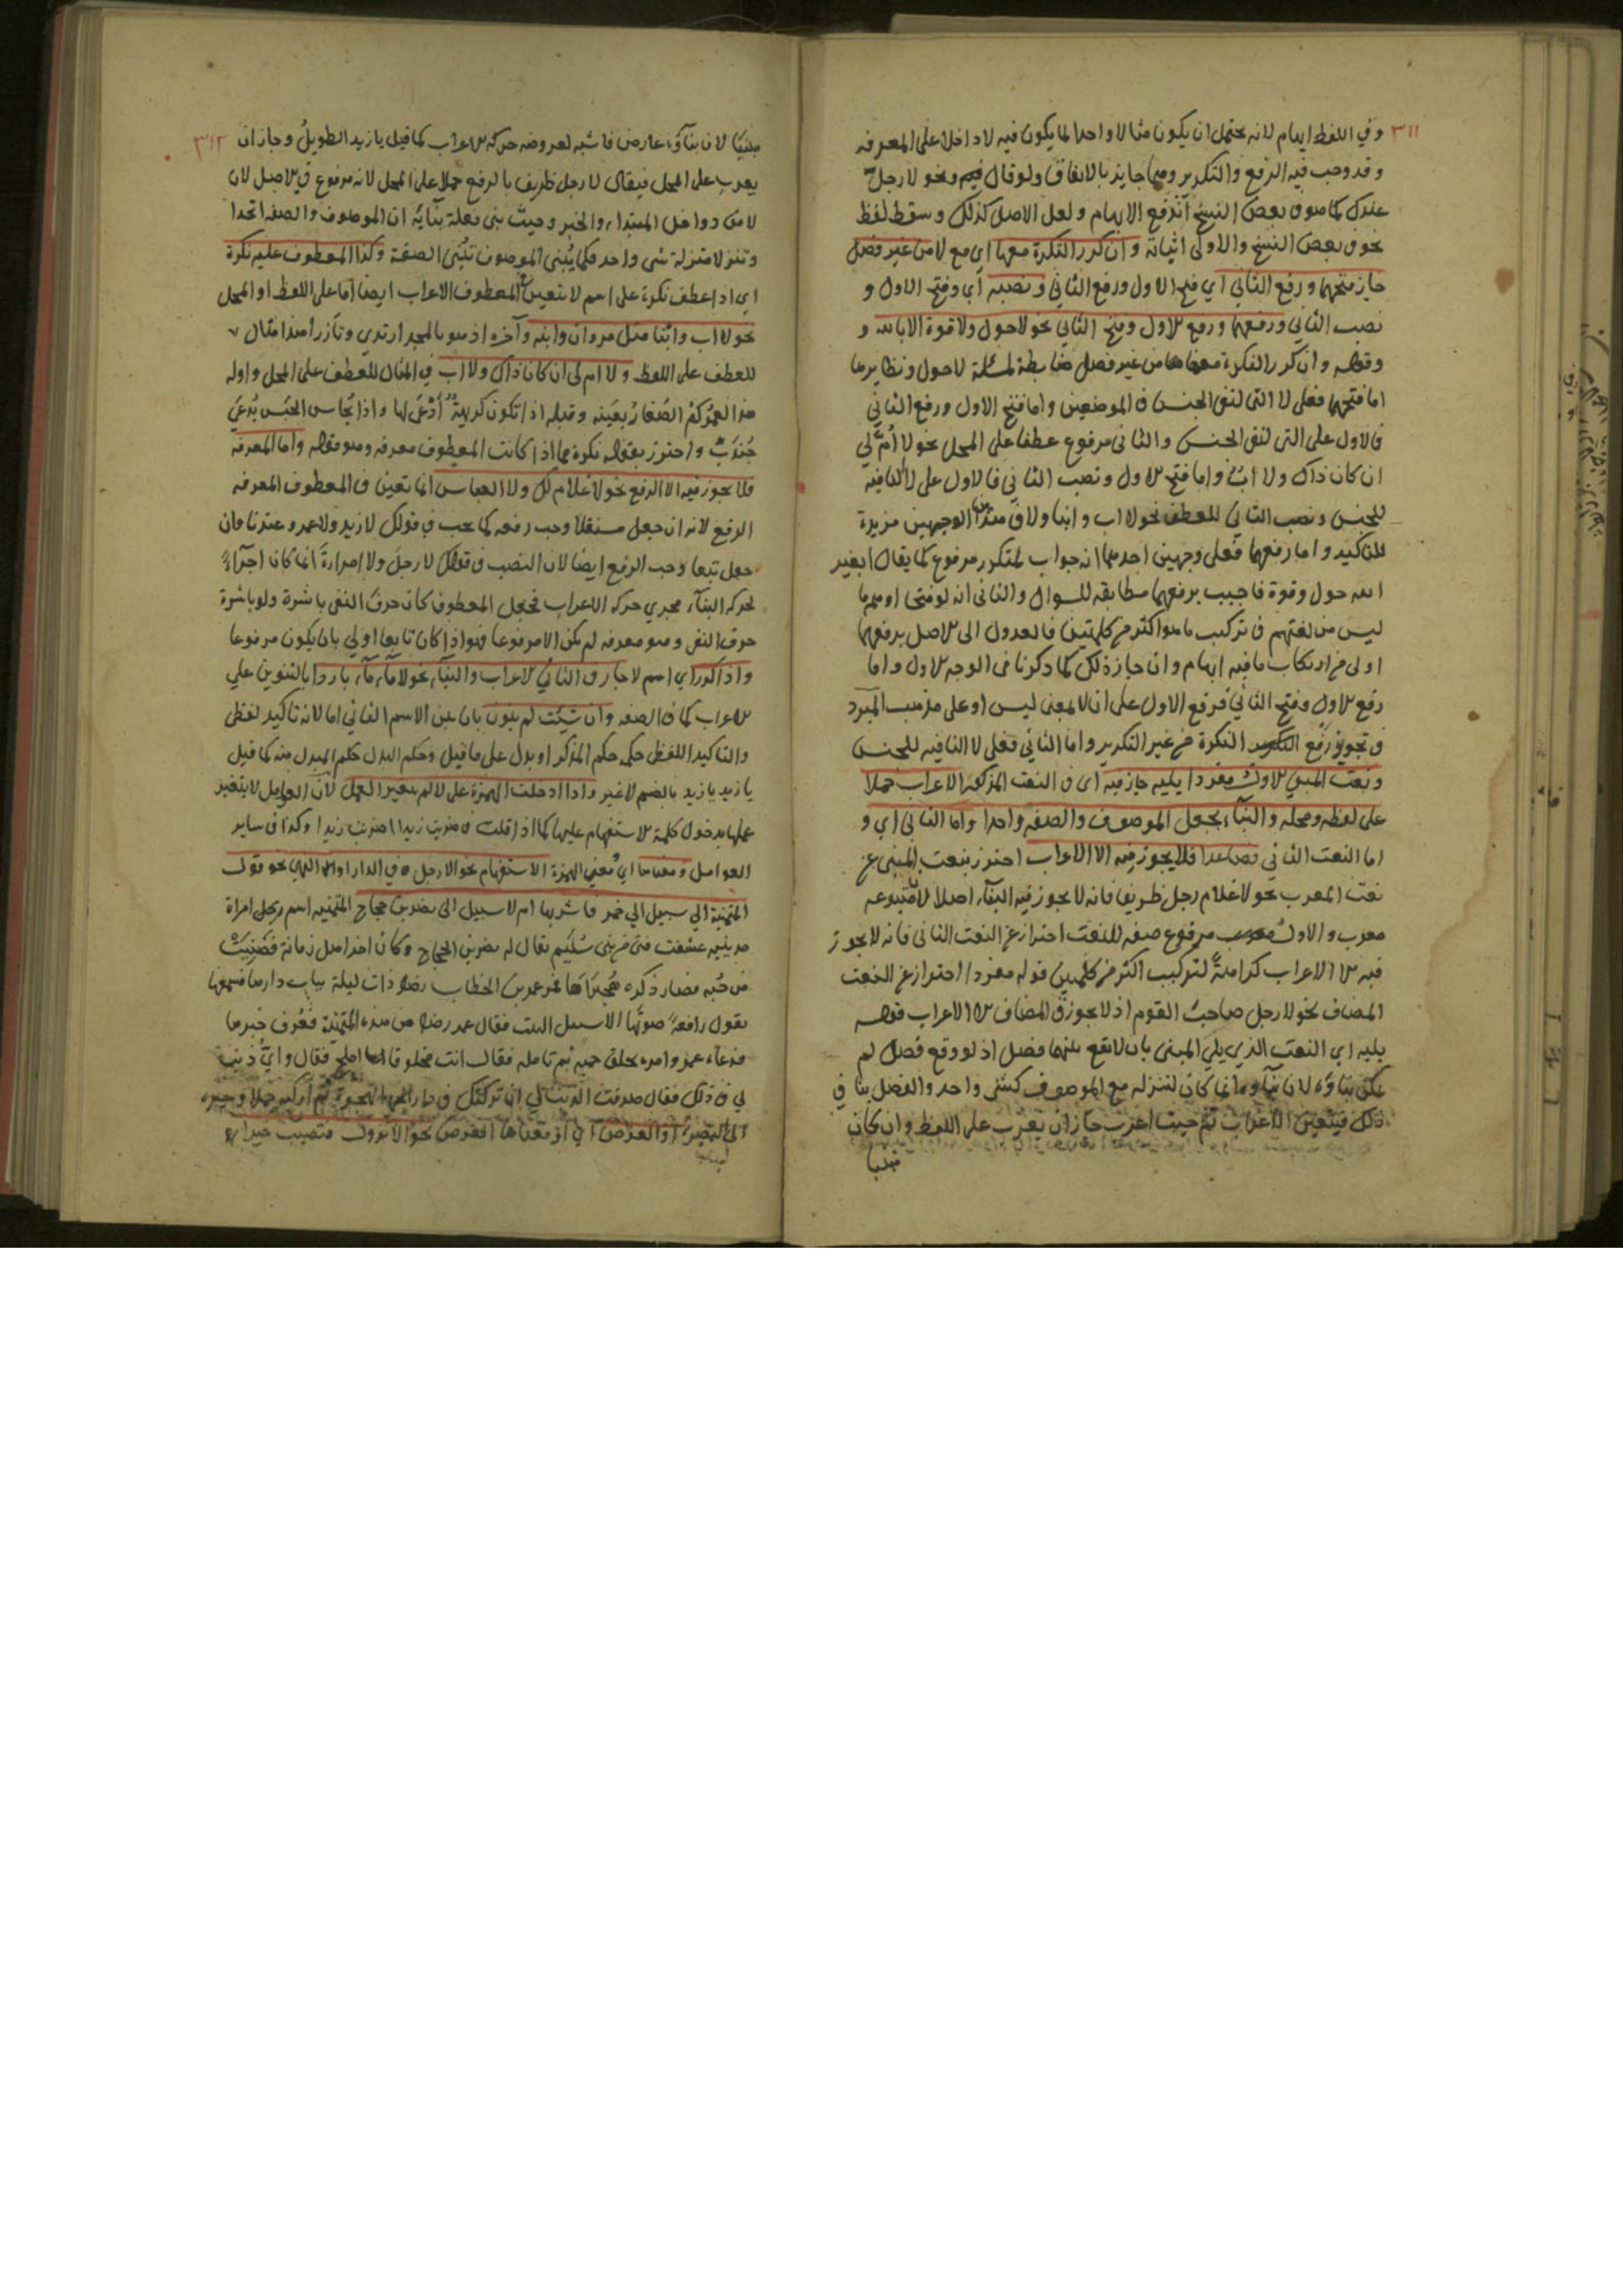 ٣١١
وفي اللفظ ايهام لانه يحتمل ان يكون مثالا واحدا لما يكون فيه لا داخلا على المعرفه
وقد وجب فيه الرفع والتكرير وهما جايز بالاتفاق ولو قال ونحو لا رجل
عندك كما هو في بعض النسخ اندفع الايهام ولعل الاصل كذلك وسقط لفظ
نحو في بعض النسخ والاولى اثباته وان كرر النكرة معها اي مع لا من غير فصل
جاز فتحهما ورفع الثاني اي فتح الاول ورفع الثاني ونصبه اي وفتح الاول و
نصب الثاني ورفعهما ورفع الاول وفتح الثاني نحو لا حول ولا قوة الا بالله و
وقوله وان كرر النكرة معها من غير فصل ضابطة لمسئلة لا حول ونظايرها
اما فتحهما فعلى لا التي لنفي الجنس في الموضعين واما فتح الاول ورفع الثاني
فالاول على التي لنفي الجنس والثاني مرفوع عطفا على المحل نحو لا ام لي
ان كان ذاك ولا اب واما فتح الاول ونصب الثاني فالاول على لا النافيه
للجنس ونصب الثاني للعطف نحو لا اب وابنا ولا في هذين الوجهين مزيدة
للتاكيد واما رفعهما فعلى وجهين احدهما انه جواب لمتكرر مرفوع كما يقال ابغير
الله حول وقوة فاجيب برفعهما مطابقه للسوال والثاني انه لو فتحا اوهم ما
ليس من لغتهم في تركيب ما هو اكثر من كلمتين فالعدول الى الاصل برفعهما
اولى من ارتكاب ما فيه ايهام وان جاز ذلك كما ذكرنا في الوجه الاول واما
رفع الاول وفتح الثاني فرفع الاول على ان لا بمعنى ليس او على مذهب المبرد
في تجويز رفع النكرة من غير التكرير واما الثاني فعلى لا النافيه للجنس
ونعت المبني الاول مفردا يليه جاز فيه اي في النعت المذكور الاعراب حملا
على لفظه ومحله والبناء بجعل الموصوف والصفه واحدا واما الثاني اي و
اما النعت الثاني فصاعدا فلا يجوز فيه الا الاعراب احترز بنعت المبني عن
نعت المعرب نحو لا غلام رجل ظريفا فانه لا يجوز فيه البناء اصلا لان متبوعه
معرب والاول مرفوع صفه للنعت احتراز عن النعت الثاني فانه لا يجوز
فيه الا الاعراب كراهة لتركيب اكثر من كلمتين قوله مفردا احتراز عن النعت
المضاف نحو لا رجل صاحب القوم اذ لا يجوز في المضاف الا الاعراب قوله
يليه اي النعت الذي يلي المبنى بان لا يقع بينهما فصل اذ لو وقع فصل لم
يمكن بناؤه لان بناوه انما كان لتنزله مع الموصوف كشئ واحد والفصل ينافي
ذلك فيتعين الاعراب ثم حيث اعرب جاز ان يعرب على اللفظ وان كان
مبنيا
٣١٢
مبنيا لان بناؤه عارض فاشبه لعروضه حركه الاعراب كما قيل يا زيد الطويل وجاز ان
يعرب على المحل فيقال لا رجل ظريف بالرفع حملا على المحل لانه مرفوع في الاصل لان
لا من دواخل المبتداء والخبر وحيث بني فعلة بنائه ان الموصوف والصفه اتحدا
وتنزلا منزلة شى واحد فكما يبنى الموصوف تبنى الصفة وكذا المعطوف عليه نكرة
اي اذا عطف نكرة على اسم لا تعين في المعطوف الاعراب ايضا اما على اللفظ او المحل
نحو لا اب وابنا مثل مروان وابنه وآخره اذ هو بالمجد ارتدي وتأزرا هذا مثال
للعطف على اللفظ ولا ام لي ان كان ذاك ولا اب في المثال للعطف على المحل واوله
هذا لعمركم الصغار بعينه وقبله اذا تكون كريهة أدعى لها واذا يحاس الحيس يدعى
جندب واحترز بقوله نكرة عما اذا كانت المعطوف معرفه وهو قوله واما المعرفه
فلا يجوز فيه الا الرفع نحو لا غلام لك ولا العباس انما تعين في المعطوف المعرفه
الرفع لانه ان جعل مستقلا وجب رفعه كما يجب في قولك لا زيد ولا عمرو عندنا وان
جعل تبعا وجب الرفع ايضا لان النصب في قولك لا رجل ولا امراة انما كان اجراء
لحركه البناء مجري حركه الاعراب فجعل المعطوف كان حرف النفى باشرة ولو باشرة
حرف النفى وهو معرفه لم يكن الا مرفوعا فهو اذا كان تابعا اولي بان يكون مرفوعا
واذا كرر اي اسم لا جاز في الثاني الاعراب والبناء نحو لا ماء ماء باردا بالتنوين علي
الاعراب كما في الصفه وان شئت لم ينون بان بني الاسم الثاني اما لانه تاكيد لفظى
والتاكيد اللفظى حكمه حكم المذكر او بدل على ما قيل وحكم البدل حكم المبدل منه كما قيل
يا زيد يا زيد بالضم لا غير واذا ادخلت الهمزة على لا لم يتغير العمل لان العوامل لا يتغير
عملها بدخول كلمة الاستفهام عليها كما اذا قلت في ضربت زيدا اضربت زيدا وكذا في ساير
العوامل ومعناها اي معنى الهمزة الاستفهام نحو الا رجل في الدار او التمنى نحو قول
المتمنية الا سبيل الي خمر فاشربها ام لا سبيل الى نصر بن حجاج المتمنيه اسم رجل امراة
مدينيه عشقت فتى من بني سليم يقال له نصر بن الحجاج وكان احد اهل زمانه فضنيت
من حبه فصار ذكره هجيراها فمر عمر بن الخطاب رضه ذات ليلة بباب دارها فسمعها
تقول رافعة صوتها الا سبيل البيت فقال عمر رضه من هذه المتمنية فعرف خبرها
فدعاه عمر وامره بحلق جميه ثم تامله فقال انت محلوقا املح فقال واي ذنب
لي في ذلك فقال صدقت الذنب لي ان تركتك في دار الهجرة ثم اركبه جملا وسيره
الى البصرة او العرض اي او معناها العرض نحو الا تنزل فتصيب خيرا